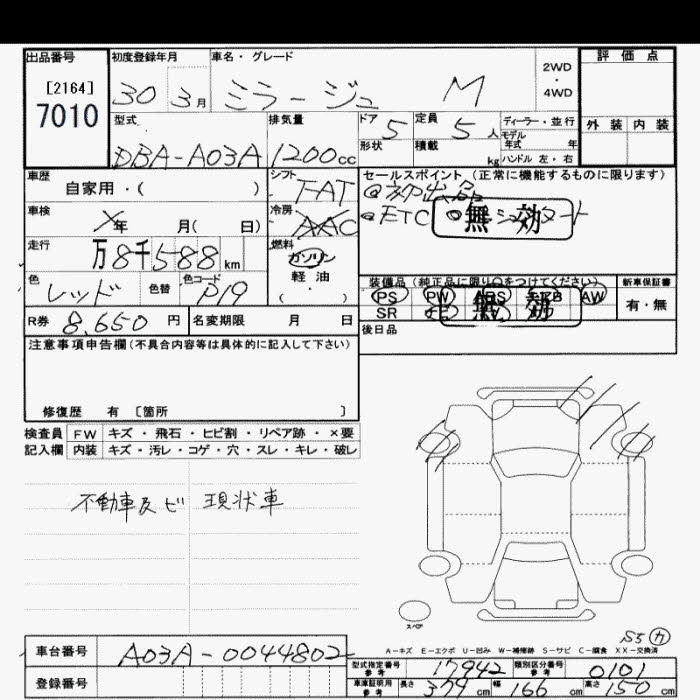 出品番号
[2164]
7010
初度登録年月
30 3月
車名・グレード
ミラージュ M
2WD
・
4WD
評価点
外装 内装
型式
DBA-A03A
排気量
1200cc
ドア
5
形状
定員
5人
積載
kg
ディーラー・並行
モデル
年式 年
ハンドル 左・右
車歴
自家用・( )
シフト
FAT
車検
年 月( 日)
冷房
AAC
走行
万8千588km
燃料
ガソリン
軽油
( )
色
レッド
色替
色コード
P19
セールスポイント (正常に機能するものに限ります)
ETC
無効
装備品 (純正品に限り○をつけてください)
PS PW AW
SR
無効
新車保証書
有・無
R券 8,650円
名変期限 月 日
後日品
注意事項申告欄(不具合内容等は具体的に記入して下さい)
修復歴 有 〔箇所 〕
検査員 FW キズ・飛石・ヒビ割・リペア跡・×要
記入欄 内装 キズ・汚レ・コゲ・穴・スレ・キレ・破レ
不動車及ビ 現状車
スペア
A-キズ E-エクボ U-凹み W-補修跡 S-サビ C-腐食 XX-交換済
車台番号 A03A-0044802
登録番号
型式指定番号
参考
17942
類別区分番号
参考
0101
車庫証明用
参考
長さ 379cm 幅 166cm 高さ 150cm